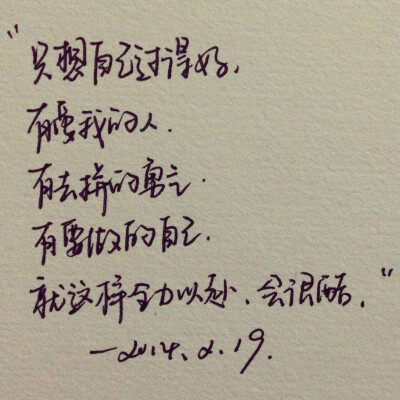 "只想自己过得好,
有爱我的人.
有去拼的寓言.
有要做的自己.
就这样全力以赴、会很酷."
—2014.2.19.